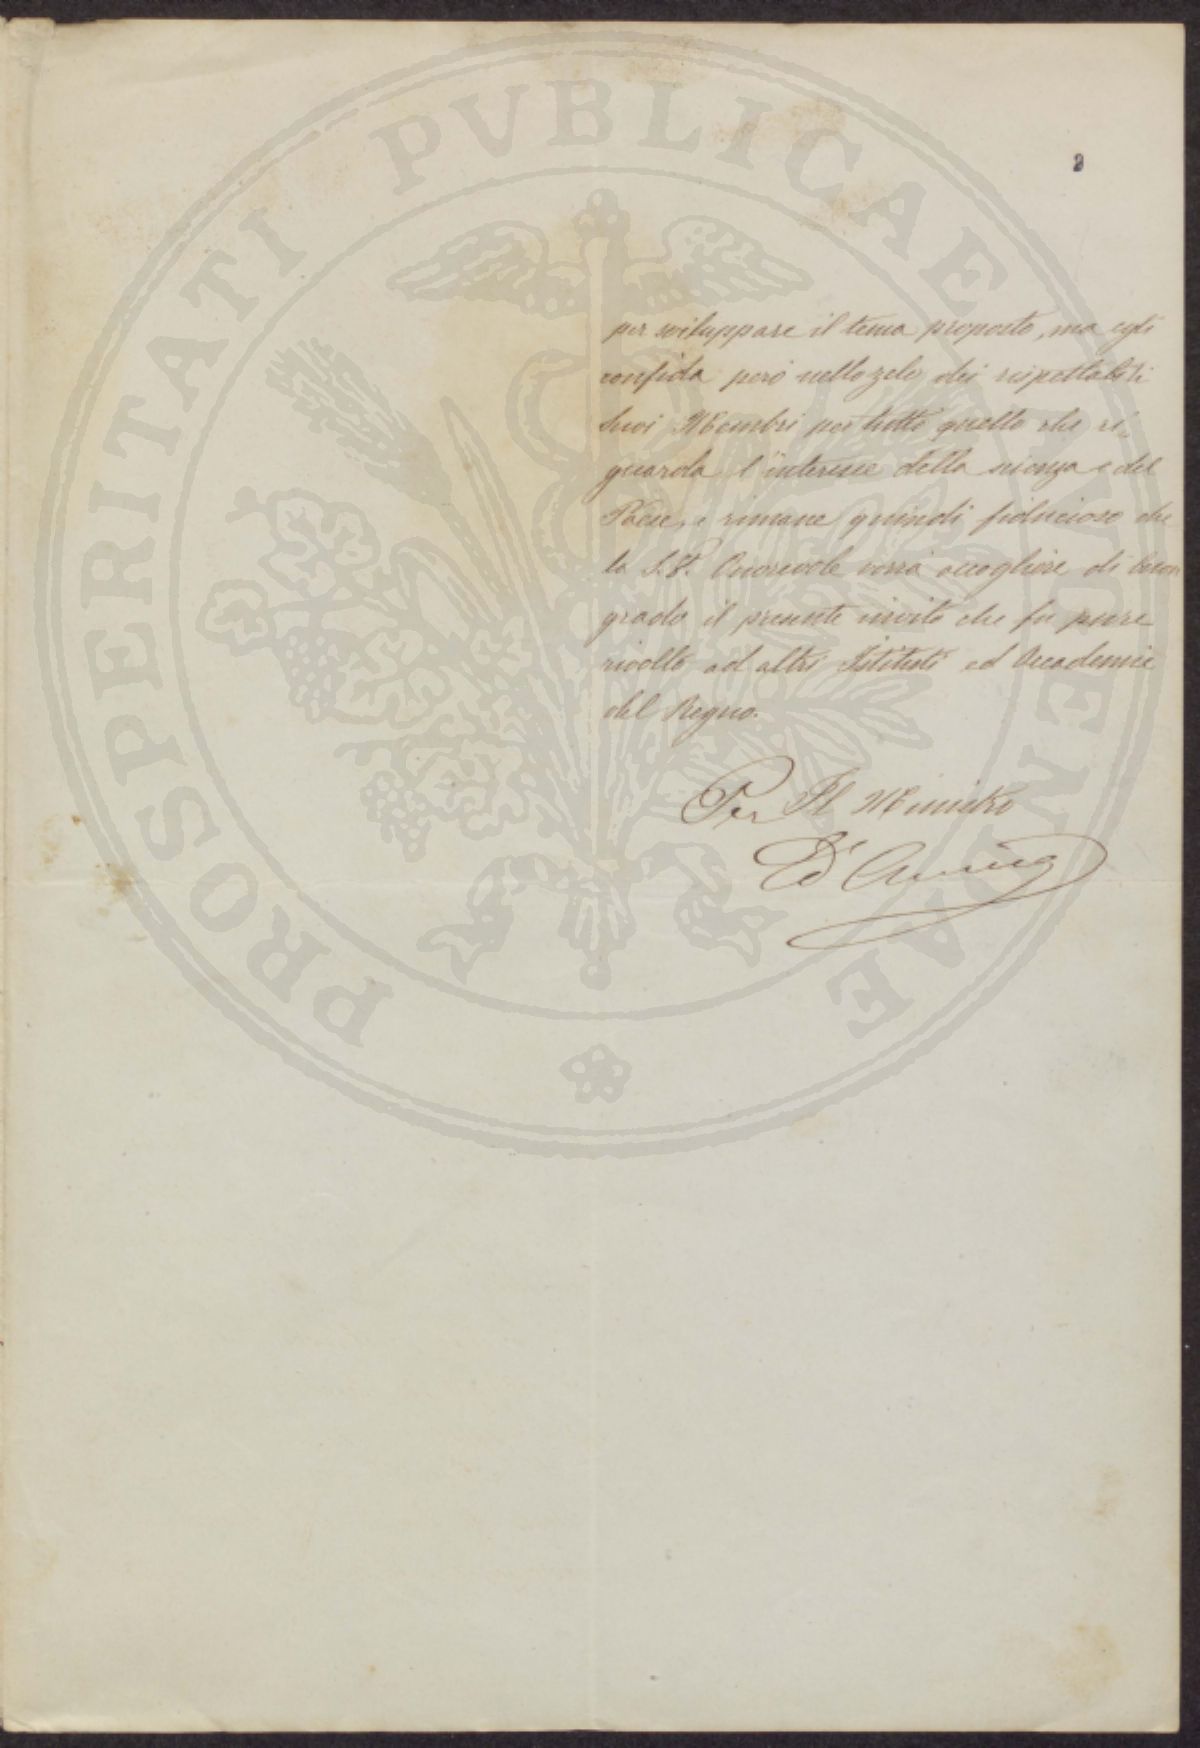 2
per sviluppare il tema proposto, ma egli
confida però nello zelo dei rispettabili
suoi Membri per tutto quello che ri-
guarda l'interesse della scienza e del
Paese, e rimane quindi fiducioso che
la S. V. Onorevole vorrà accogliere di buon
grado il presente invito che fu pure
rivolto ad altri Istituti ed Accademie
del Regno.
Per Il Ministro
PROSPERITATI PVBLICAE AVGENDAE